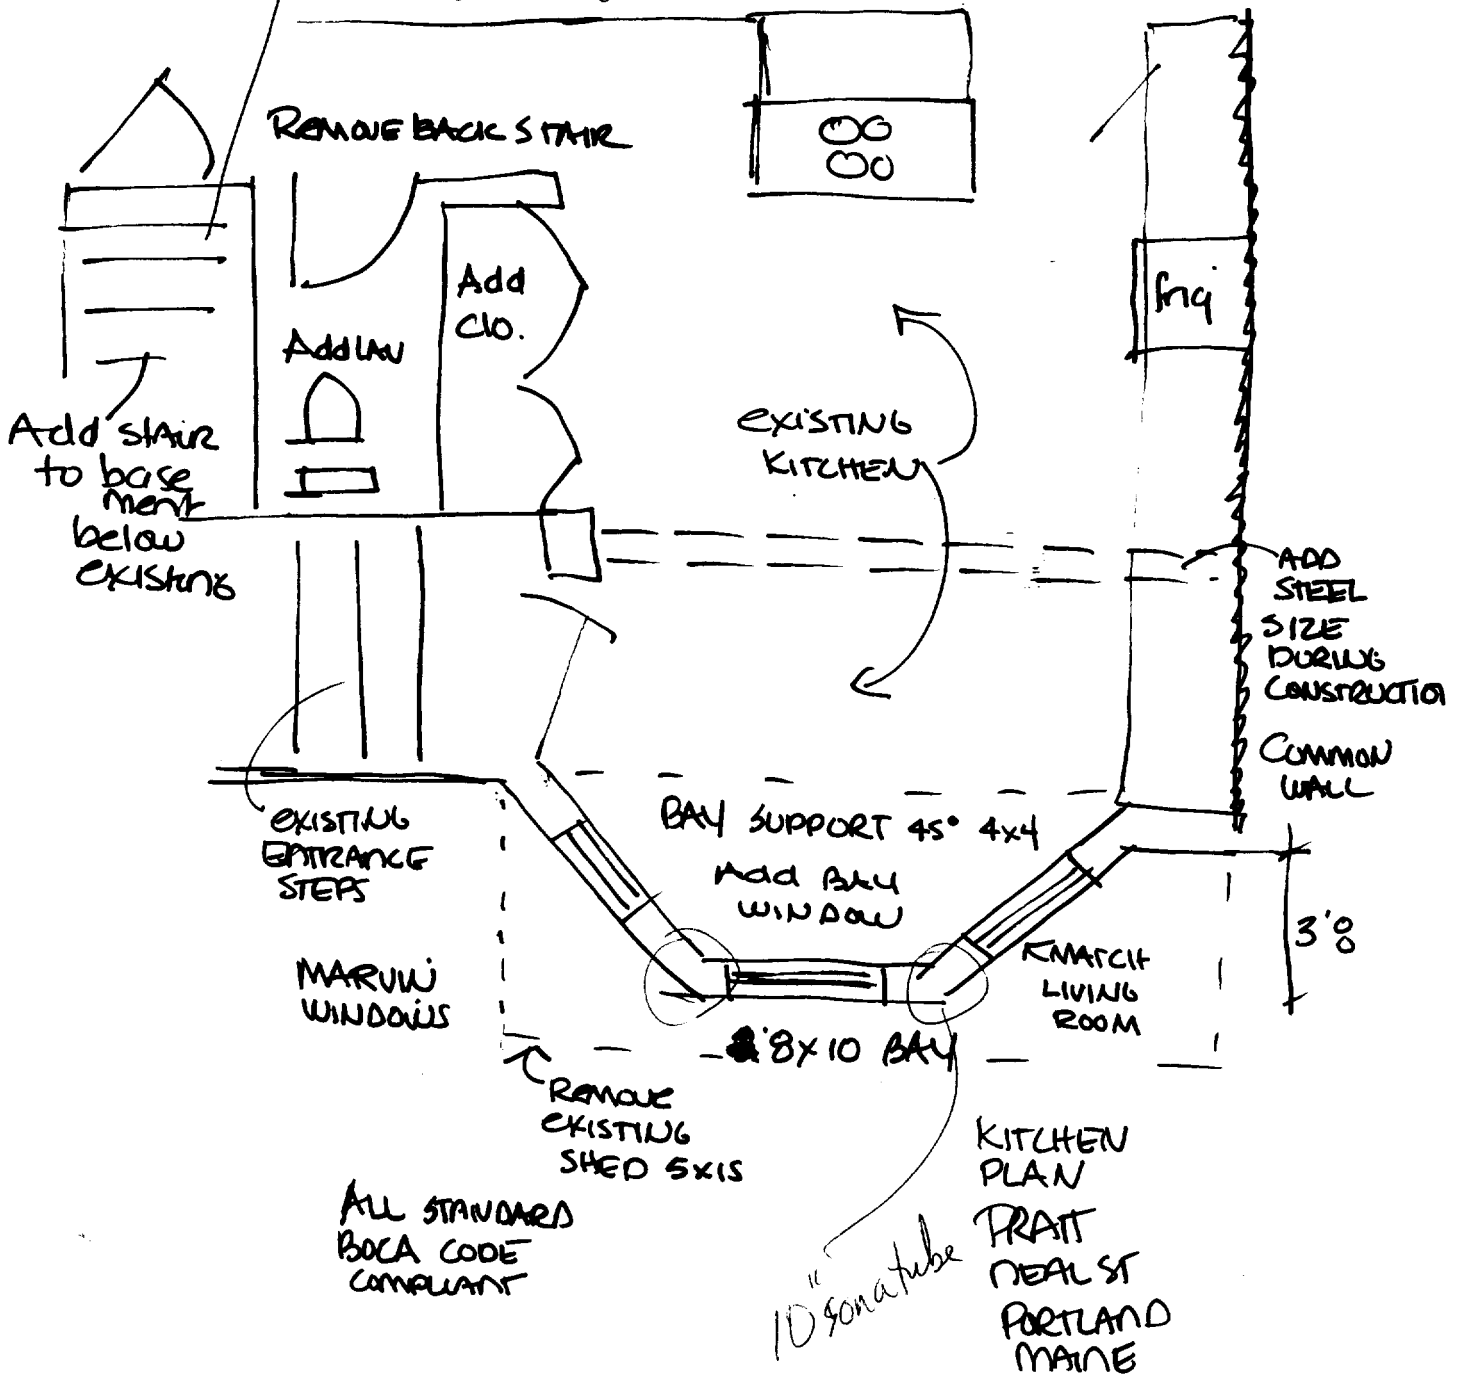 REMOVE BACK STAIR
Add
Clo.
Add LAV
friq
Add stair
to base
ment
below
existing
EXISTING
KITCHEN
ADD
STEEL
SIZE
DURING
CONSTRUCTION
COMMON
WALL
EXISTING
ENTRANCE
STEPS
BAY SUPPORT 45° 4x4
Add BAY
WINDOW
3'8
MARVIN
WINDOWS
MATCH
LIVING
ROOM
8x10 BAY
REMOVE
EXISTING
SHED 5x15
ALL STANDARD
BOCA CODE
COMPLIANT
10" sonatube
KITCHEN
PLAN
PRATT
NEAL ST
PORTLAND
MAINE